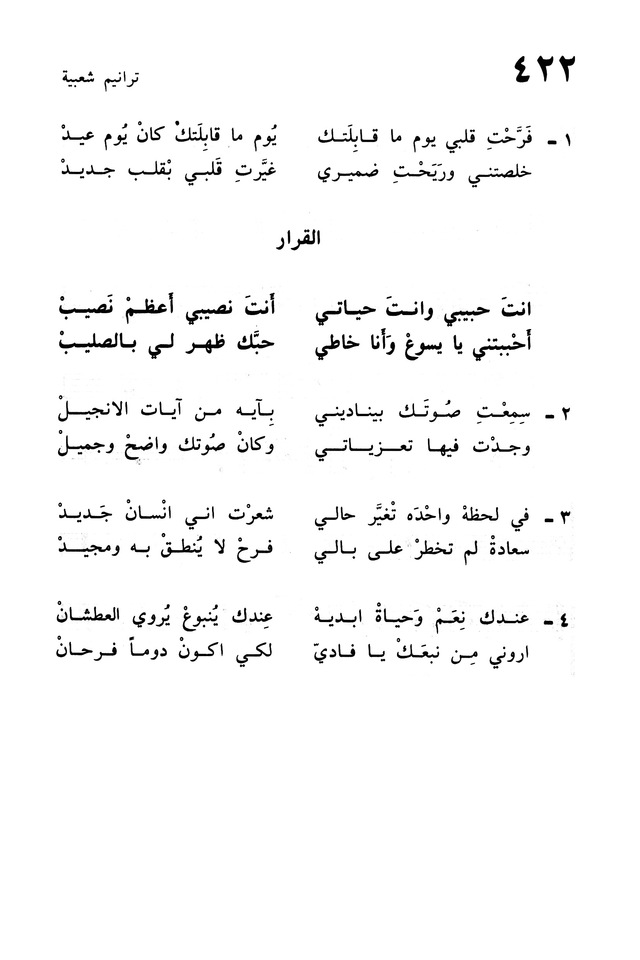 ٤٢٢
ترانيم شعبية
١ ـ فَرَّحْتِ قلبي يوم ما قـابِلَتـك يُوم ما قابِلَتكْ كانْ يُوم عيـدْ
خلصتنـي ورَيَحْـتِ ضميري غيَّرتِ قَلبـي بْقلـب جـديـدْ
القرار
انتَ حبيبي وانـتَ حيـاتـي أَنتَ نصيبي أَعظـمْ نَصيـبْ
أَحْببتني يا يسوعْ وَأَنا خاطي حبَّـك ظهـر لـي بـالصليـبْ
٢ ـ سِمِعْـتِ صُوتَـك بينـادينـي بِـآيـه مـن آيـات الانجيـلْ
وجـدْت فيهـا تعـزيـاتـي وكانْ صُوتك واضحْ وجميلْ
٣ ـ في لحظهْ واحْدَه تْغيَّر حالي شعرْت انـي انْسـانْ جَـديـدْ
سعادةْ لم تخطرْ على بـالـي فـرحْ لا يُنطـقْ بـه ومجيـدْ
٤ ـ عنـدك نِعَـمْ وَحيـاةْ ابـديـهْ عِندك يُنبوعْ يُروي العطشانْ
اروني مِـن نبعَـكْ يـا فـاديّ لكـي اكـونْ دومـاً فـرحـانْ